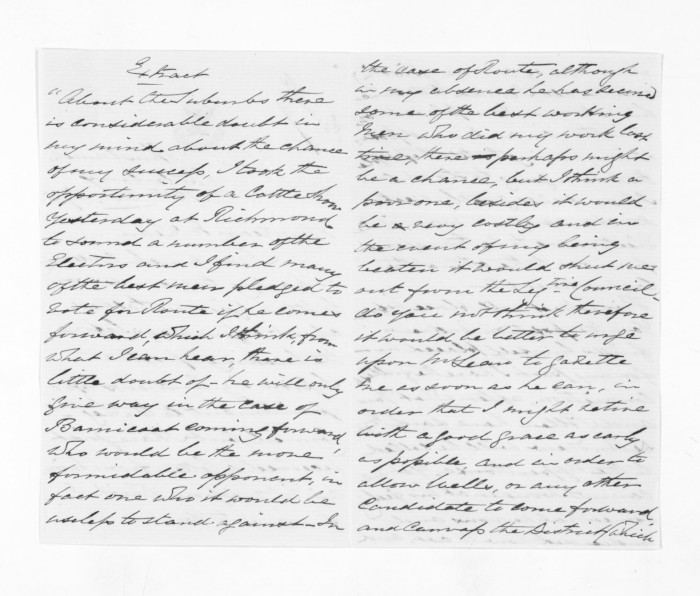 Extract
"About the Suburbs there
is considerable doubt in
my mind about the chance
of my success, I took the
opportunity of a Cattle Show
yesterday at Richmond
to sound a number of the
Electors and I find many
of the best men pledged to
vote for Route if he comes
forward, which I think, from
what I can hear, there is
little doubt of – he will only
give way in the case of
Barnicoat coming forward,
who would be the more
formidable opponent, in
fact one who it would be
useless to stand against – In
the case of Route, although
in my absence he has secured
some of the best working
men who did my work last
time, there is perhaps might
be a chance, but I think a
poor one, besides it would
be very costly and in
the event of my being
beaten it would shut me
out from the Legtive Council –
do you not think therefore
it would be better to urge
upon McLean to gazette
me as soon as he can, in
order that I might retire
with a good grace as early
as possible and in order to
allow Wells, or any other
Candidate to come forward,
and Canvass the District, which